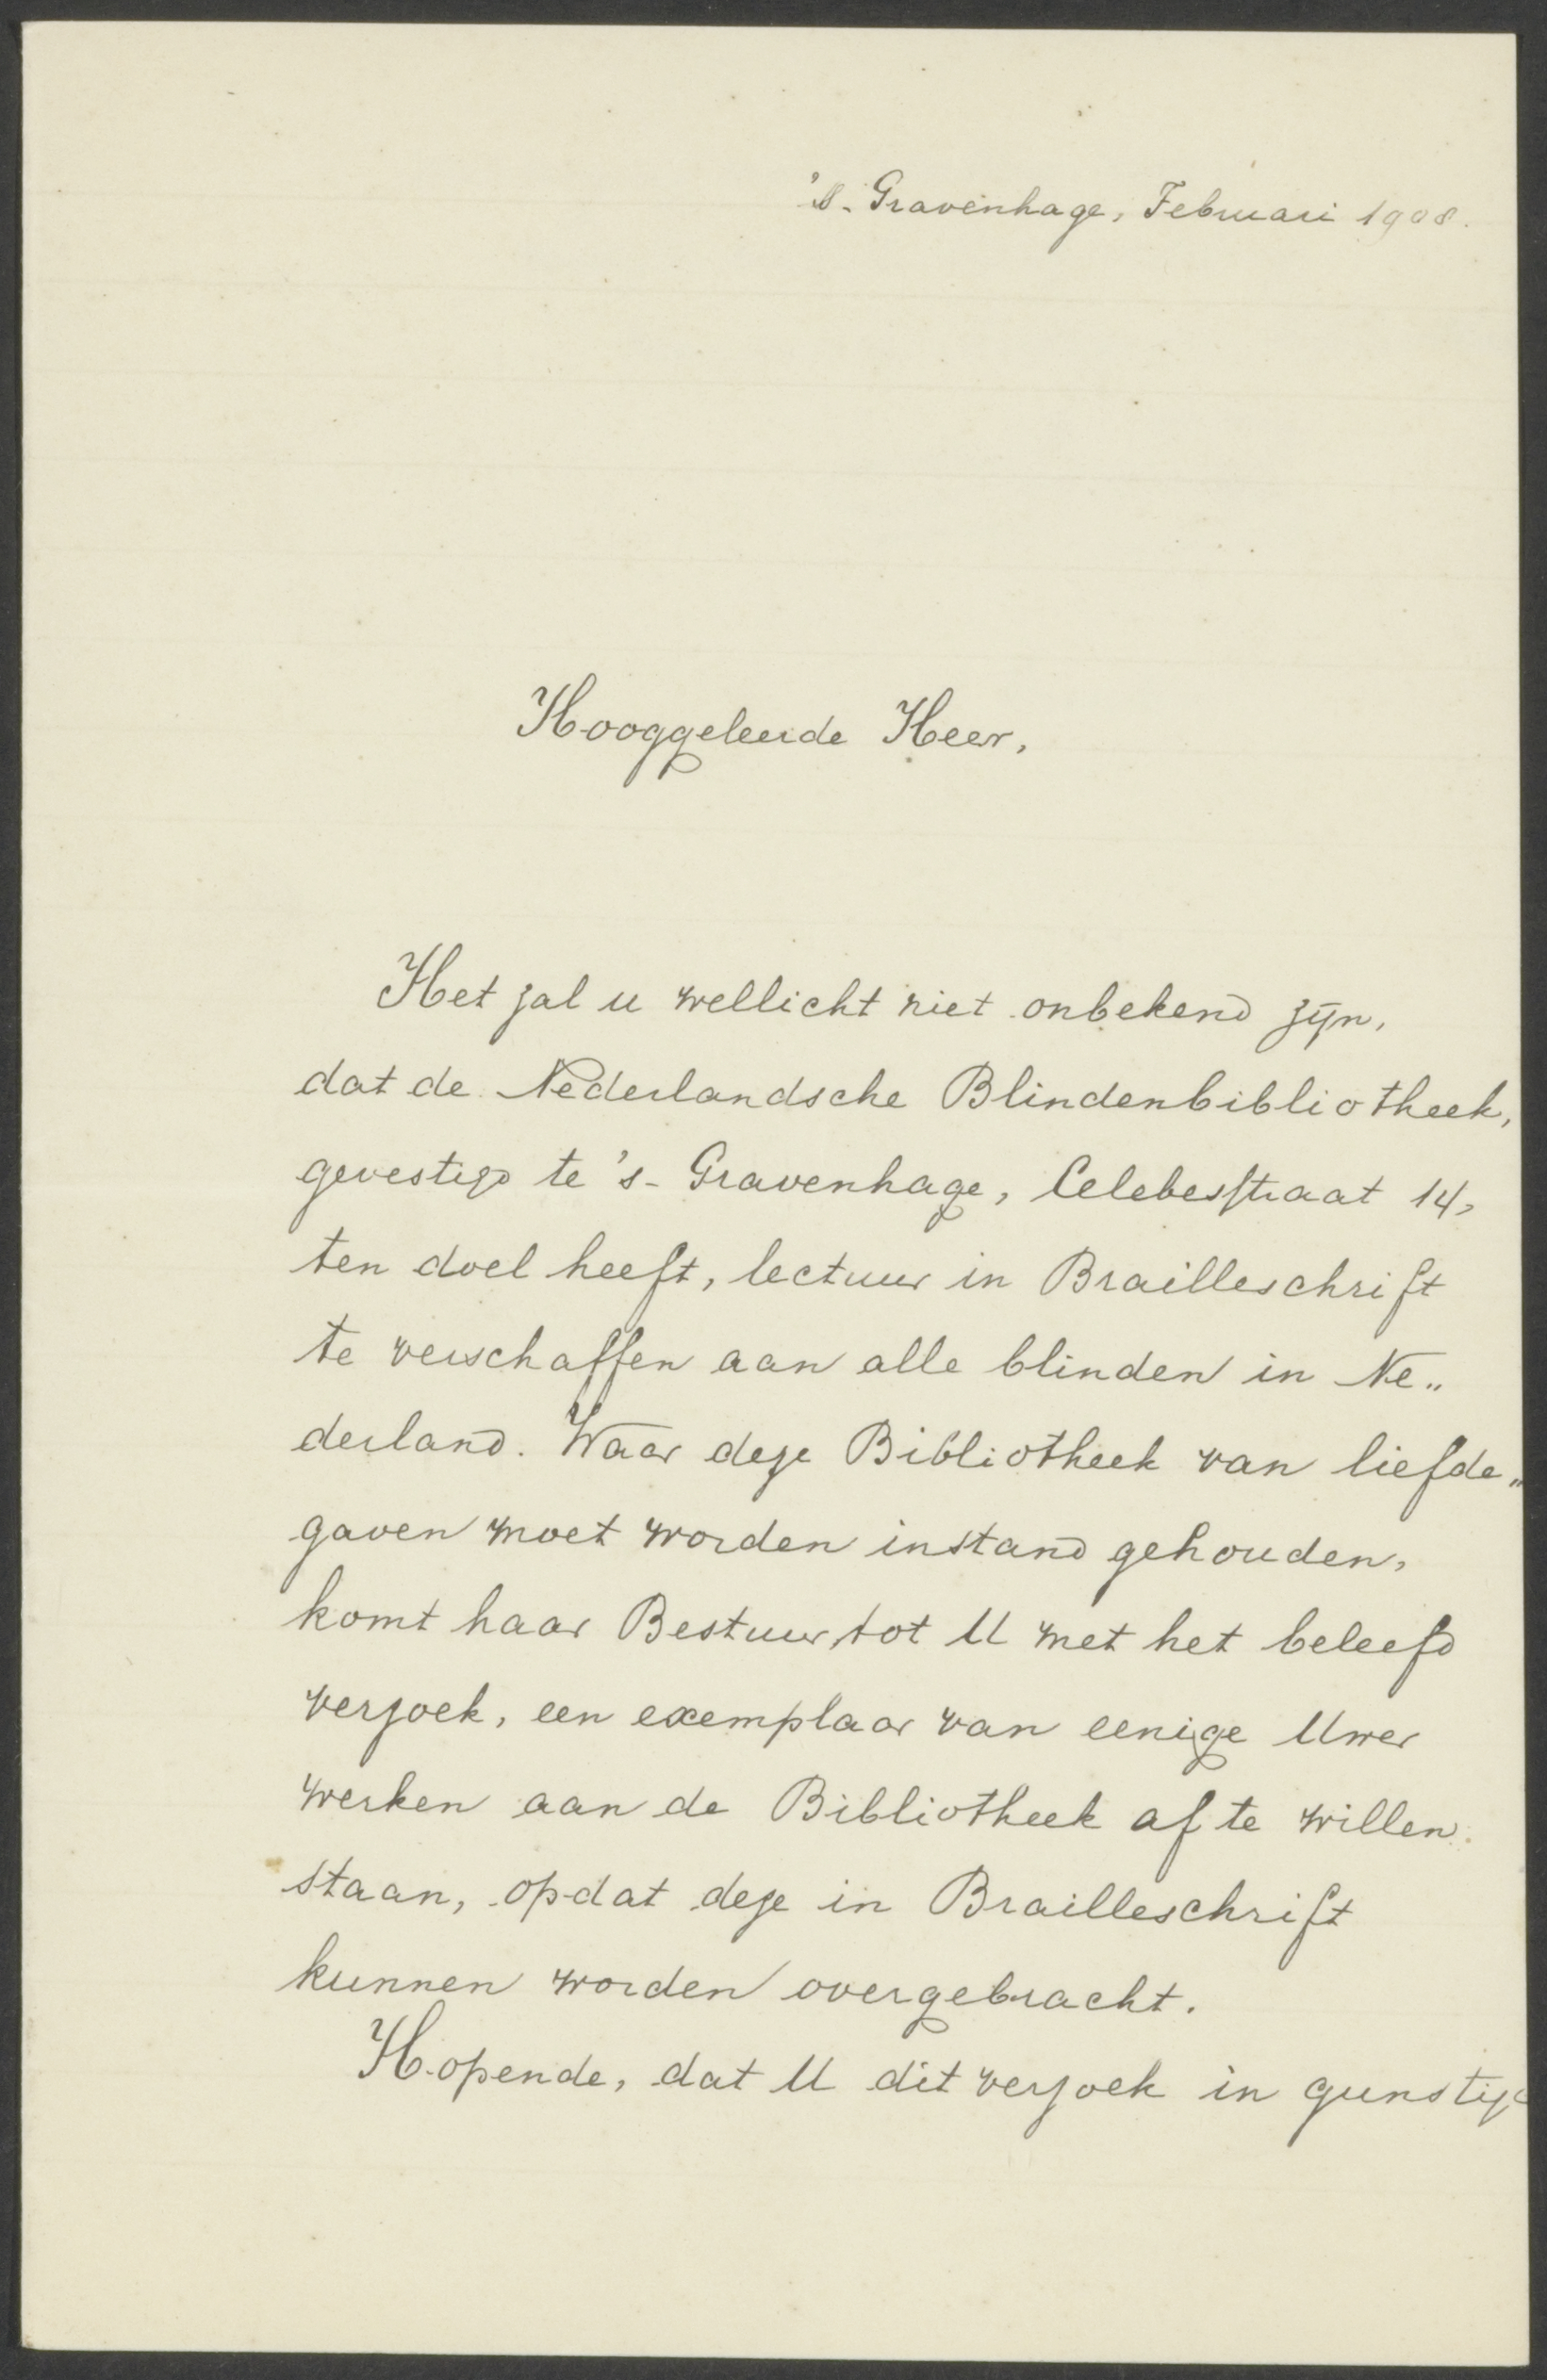 's-Gravenhage, Februari 1908.
Hooggeleerde Heer,
Het zal u wellicht niet onbekend zijn,
dat de Nederlandsche Blindenbibliotheek,
gevestigd te 's-Gravenhage, Celebesstraat 14,
ten doel heeft, lectuur in Brailleschrift
te verschaffen aan alle blinden in Ne„
derland. Waar deze Bibliotheek van liefde„
gaven moet worden instand gehouden,
komt haar Bestuur tot U met het beleefd
verzoek, een exemplaar van eenige Uwer
werken aan de Bibliotheek af te willen
staan, opdat deze in Brailleschrift
kunnen worden overgebracht.
Hopende, dat U dit verzoek in gunstige